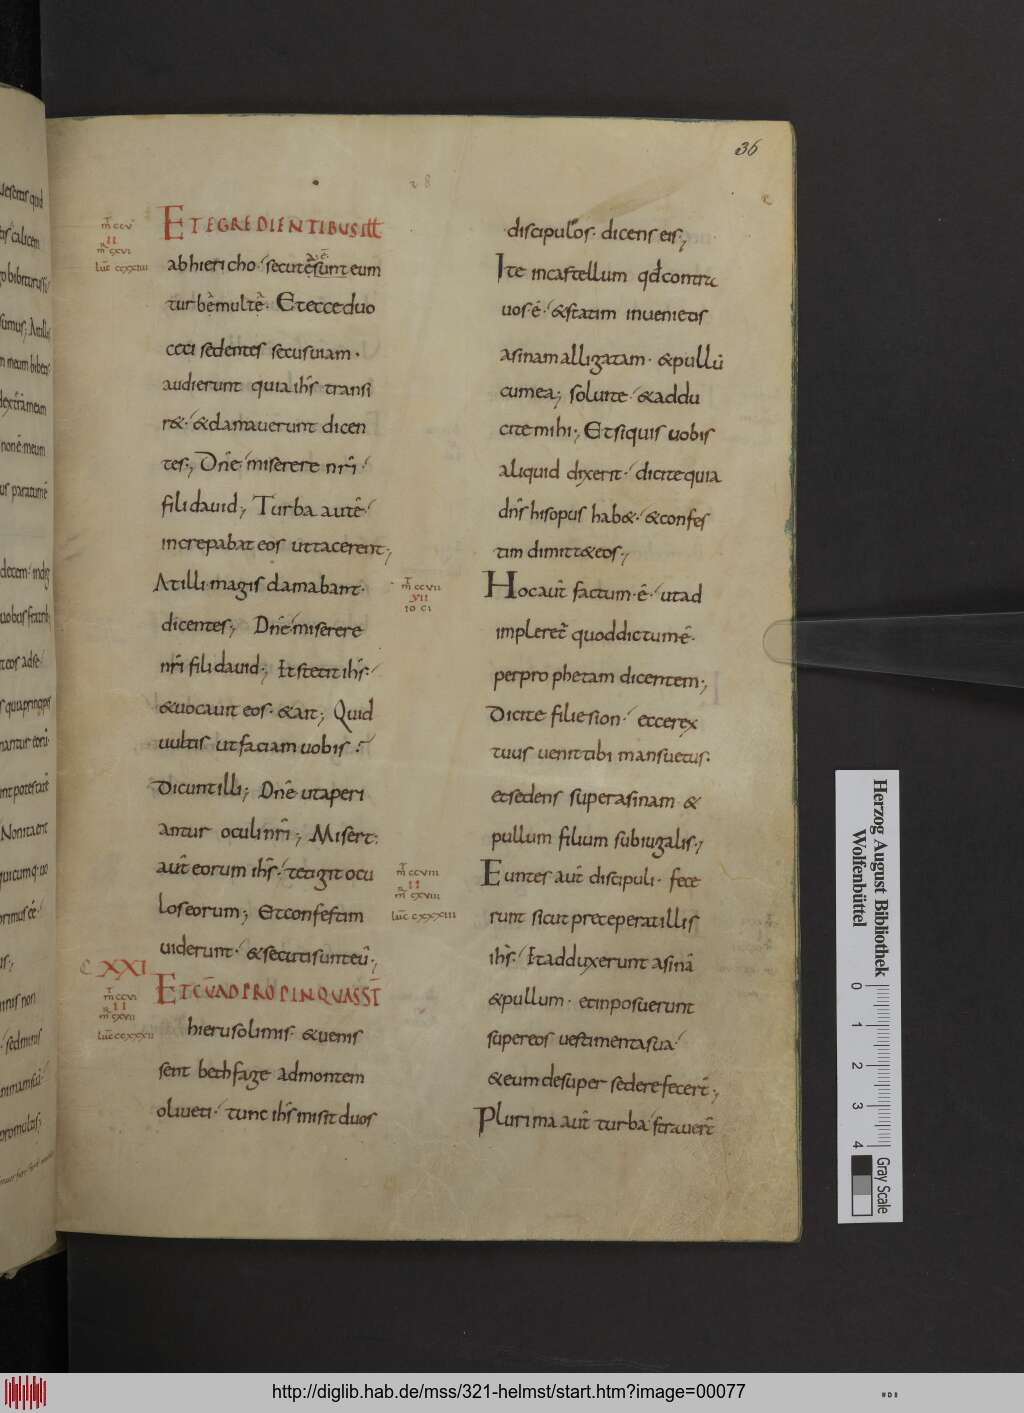 36
28
m̅ ccv
II
m̅ cxvi
luc̅ ccxxiiii
ET EGREDIENTIBUS ILL
abhiericho secute sunt eum
turbe multe. Et ecce duo
ceci sedentes secusuiam.
audierunt quia ihs̅ transi
r&. & clamauerunt dicen
tes; Dn̅e miserere nr̅i
fili dauid; Turba aute̅
increpabat eos uttacerent;
Atilli magis clamabant.
dicentes; Dn̅e miserere
nr̅i fili dauid; Et stetit ihs̅.
&uocauit eos. &ait; Quid
uultis utfaciam uobis
Dicuntilli; Dn̅e utaperi
antur oculi nr̅i; Misert.
aut̅ eorum ihs̅. tetigit ocu
loseorum; Etconfestim
uiderunt. &secutisunteu̅;
C XXI
m̅ ccvi
II
m̅ cxvii
luc̅ ccxxxii
ET CU̅ADPROPINQUASST̅
hierusolimis. &uenis
sent bethfage admontem
oliueti. tunc ihs̅ misit duos
discipulos. dicens eis;
Ite incastellum qd̅ contra
uos e̅. &statim inuenietis
asinam alligatam. &pullu̅
cumea; soluite. &addu
cite mihi; Etsiquis uobis
aliquid dixerit. dicite quia
dn̅s hisopus hab&. &confes
tim dimitt&eos;
m̅ ccvii
VII
io ci
Hocaut̅ factum. e̅. utad
impleret̅ quoddictume̅.
perprophetam dicentem;
Dicite filiesion. eccerex
tuus uenittibi mansuetus.
etsedens superasinam &
pullum filium subiugalis;
m̅ ccviii
II
m̅ cxviii
luc̅ cxxxiii
Euntes aut̅ discipuli. fece
runt sicut preceperatillis
ihs̅. Etadduxerunt asina̅
&pullum. etinposuerunt
supereos uestimentasua.
&eumdesuper sederefecert̅;
Plurima aut̅ turba strauert̅
Herzog August Bibliothek
Wolfenbüttel
0 1 2 3 4
Gray Scale
http://diglib.hab.de/mss/321-helmst/start.htm?image=00077